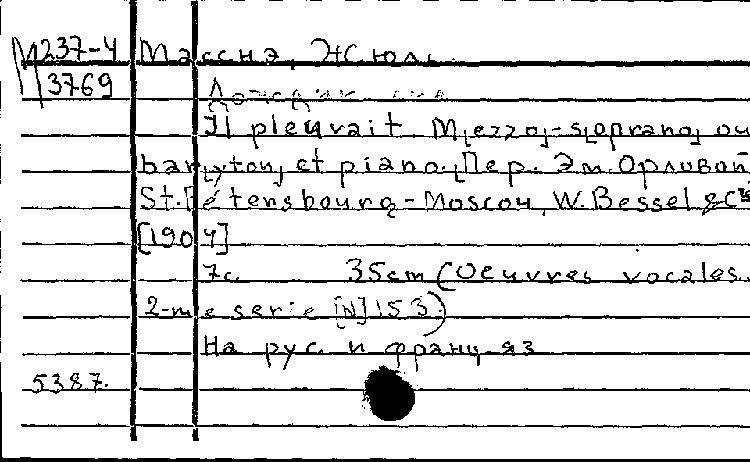 М 237-4 Масснэ, Жюль.
3769
Il pleuvait. M[ezzo]-s[oprano] ou
bar[yton] et piano. [Пер. Эм. Орловой
St. Pétersbourg - Moscou, W. Bessel & Cie
[1904]
7с. 35cm (Oeuvres vocales.
2-me serie [N] 153)
На рус. и франц яз
5387.